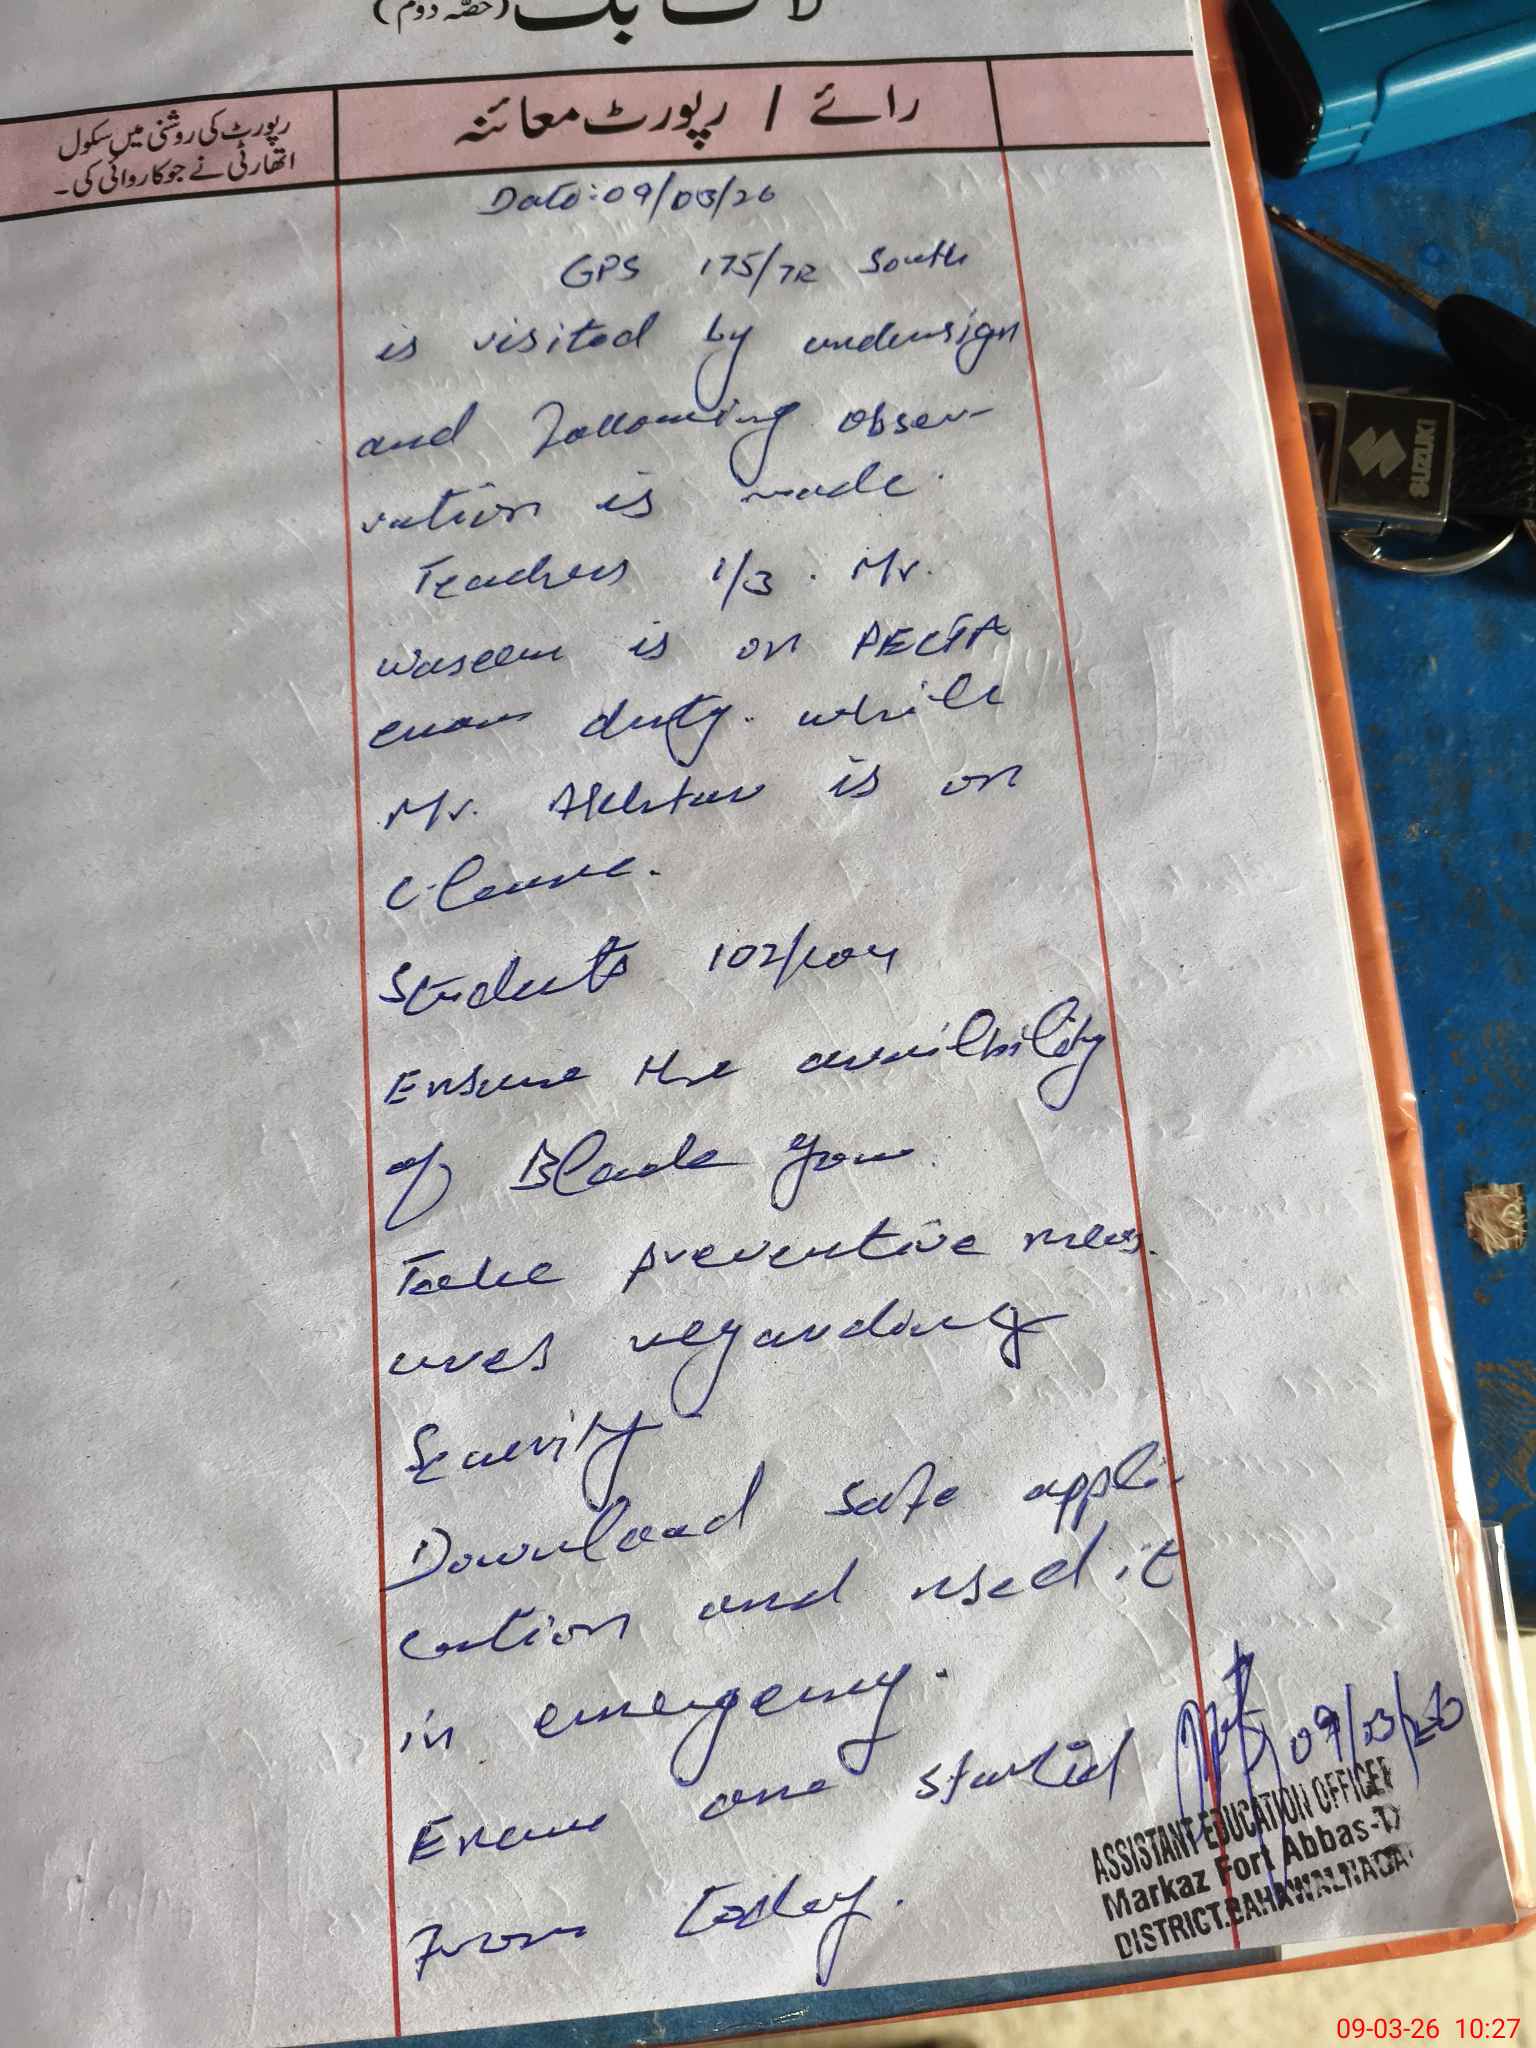 لاگ بک (حصّہ دوم)
رائے / رپورٹ معائنہ
رپورٹ کی روشنی میں سکول
اتھارٹی نے جو کاروائی کی۔
Date: 09/03/26
GPS 175/7R South
is visited by undersign
and following obser-
vation is made.
Teachers 1/3. Mr.
Waseem is on PECTA
exam duty. while
Mr. Akhtar is on
C-leave.
Students 102/
Ensure the availbility
of Blade
Take preventive meas-
ures regarding
Security
Download safe appli-
cation and used it
in emergency.
Exam are started
from today.
09/03/26
ASSISTANT EDUCATION OFFICER
Markaz Fort Abbas-
DISTRICT.BAHAWALNAGAR
SUZUKI
09-03-26 10:27